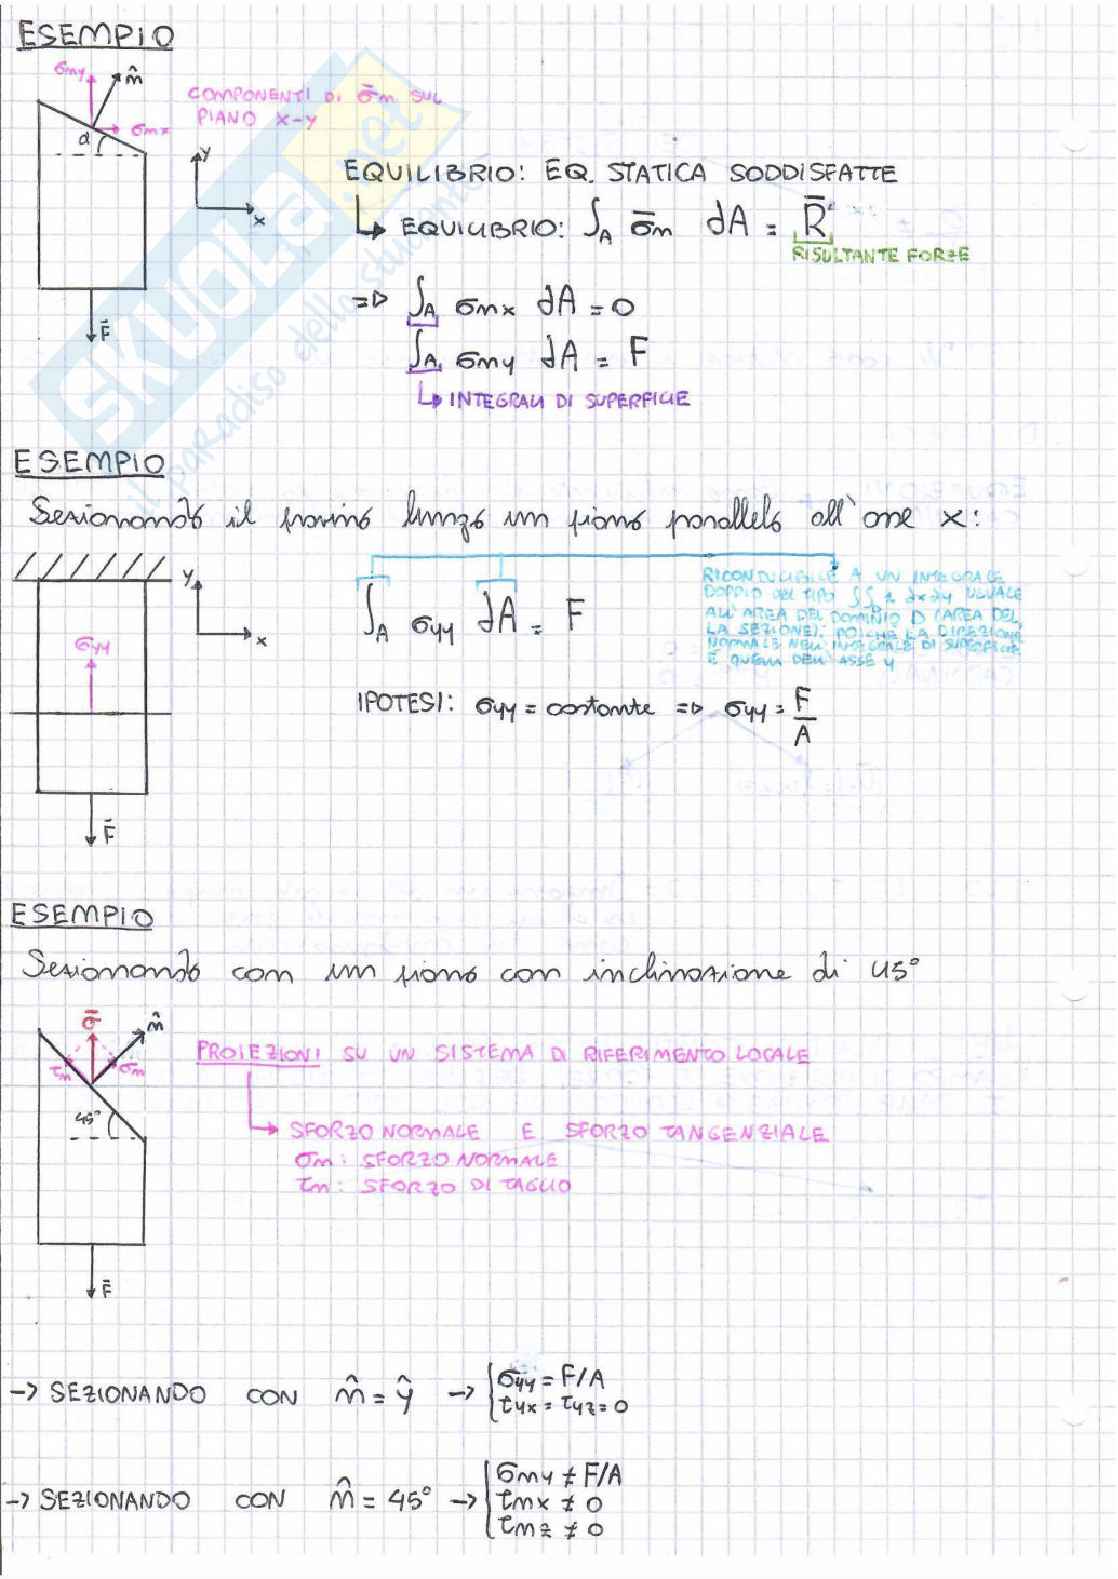 ESEMPIO
σny n̂
COMPONENTI DI σ̄n SUL
PIANO X-Y
σnx
α
y
x
EQUILIBRIO: EQ. STATICA SODDISFATTE
↳ EQUILIBRIO: ∫A σ̄n dA = R̄
RISULTANTE FORZE
=> ∫A σnx dA = 0
∫A σny dA = F
↳ INTEGRALI DI SUPERFICIE
F̄
SKUOLA.net
il paradiso dello studente
ESEMPIO
Sezionando il provino lungo un piano parallelo all'asse x:
y
x
σyy
∫A σyy dA = F
RICONDUCIBILE A UN INTEGRALE
DOPPIO DEL TIPO ∫∫ dxdy UGUALE
ALL'AREA DEL DOMINIO D (AREA DEL
LA SEZIONE), POICHÉ LA DIREZIONE
NORMALE NELL'INTEGRALE DI SUPERFICIE
È QUELLA DELL'ASSE y
IPOTESI: σyy = costante => σyy = F/A
F̄
ESEMPIO
Sezionando con un piano con inclinazione di 45°
σ̄ n̂
τn σn
45°
PROIEZIONI SU UN SISTEMA DI RIFERIMENTO LOCALE
SFORZO NORMALE E SFORZO TANGENZIALE
σn: SFORZO NORMALE
τn: SFORZO DI TAGLIO
F̄
-> SEZIONANDO CON n̂ = ŷ -> { σyy = F/A
τyx = τyz = 0
-> SEZIONANDO CON n̂ = 45° -> { σny ≠ F/A
τnx ≠ 0
τnz ≠ 0